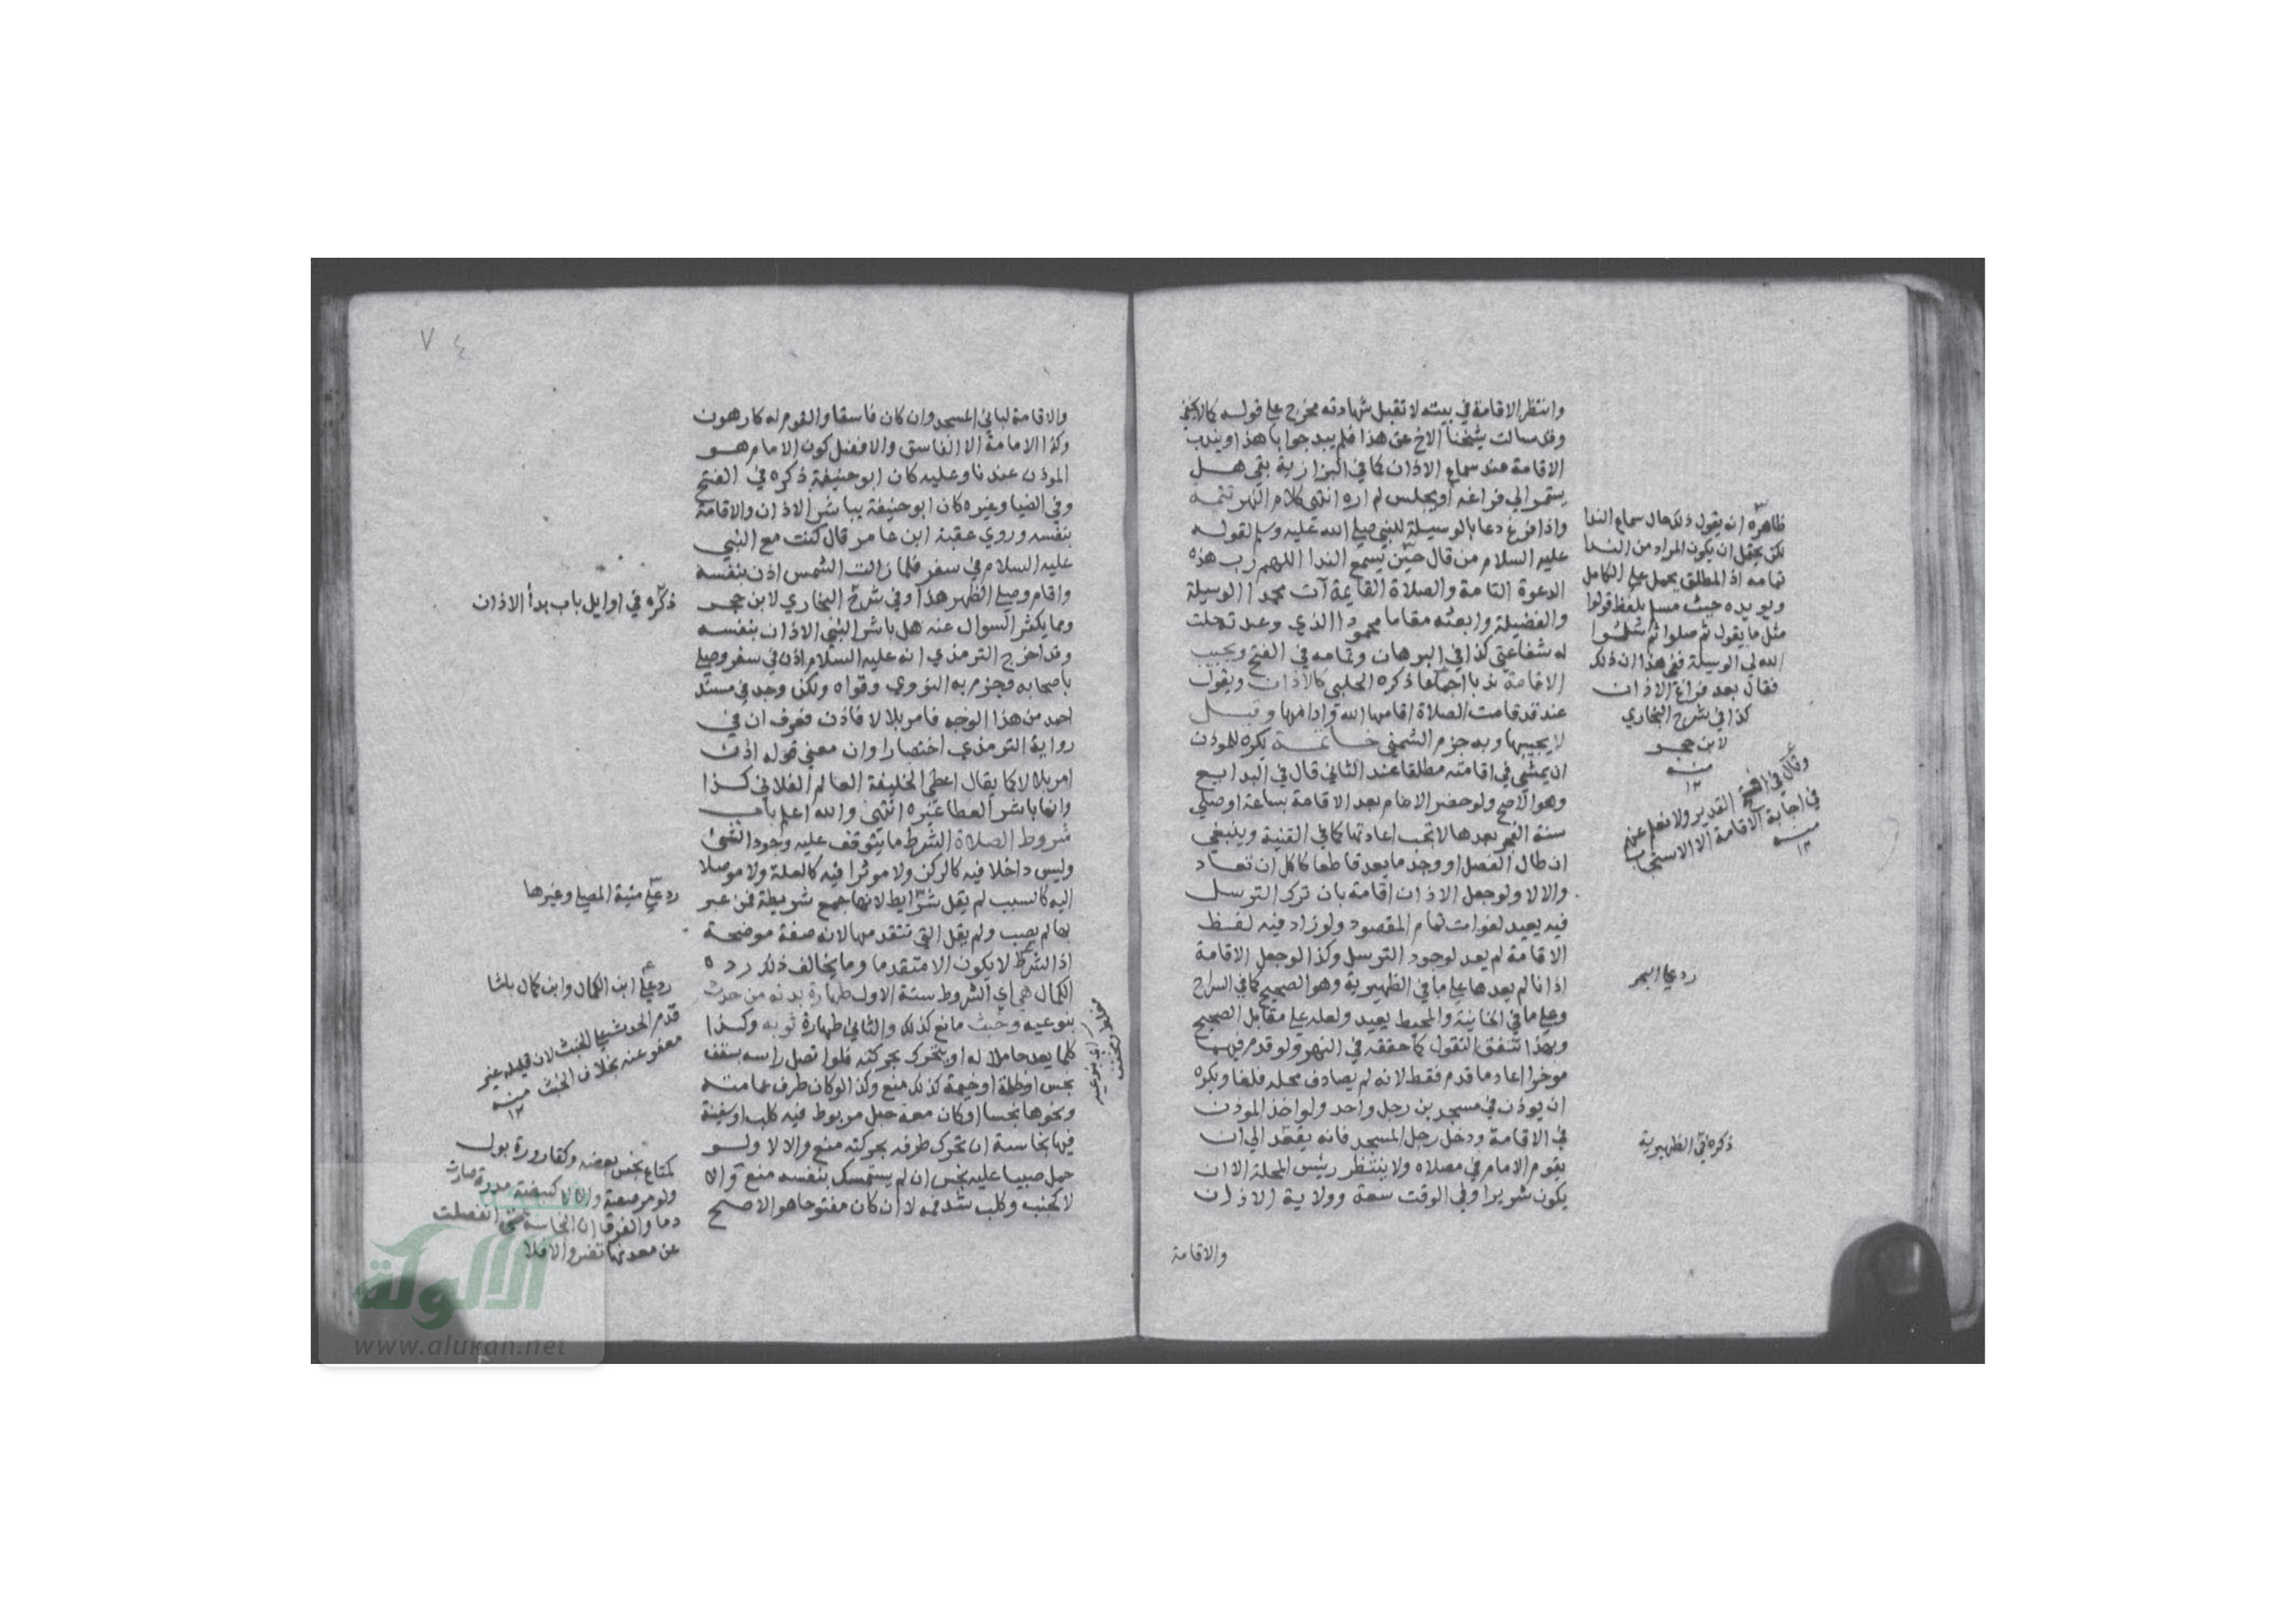 وانتظر الاقامة في بيته لا تقبل شهادته مخرج على قوله كما لا يخفى
وقد سالت شيخنا الاخ عن هذا فلم يبد جوابا هذا ويندب
الاقامة عند سماع الاذان كما في البزازية بقي هل
يستمر الى فراغه او يجلس لم اره انتهى كلام النهر تتمة
واذا فرغ دعا بالوسيلة للنبي صلى الله عليه وسلم لقوله
عليه السلام من قال حين يسمع الندا اللهم رب هذه
الدعوة التامة والصلاة القايمة آت محمدا الوسيلة
والفضيلة وابعثه مقاما محمودا الذي وعدته حلت
له شفاعتي كذا في البرهان وتمامه في الفتح ويجيب
الاقامة ندبا اجماعا ذكره الحلبي كالاذان ويقول
عند قد قامت الصلاة اقامها الله وادامها وقيل
لا يجيبها وبه جزم الشمني خاتمة يكره للموذن
ان يمشي في اقامته مطلقا عند الثاني قال في البدايع
وهو الاصح ولو حضر الامام بعد الاقامة بساعة او صلى
سنة الفجر بعدها لا تجب اعادتها كما في القنية وينبغي
ان طال الفصل او وجد ما يعد قاطعا كاكل ان تعاد
والا لا ولو جعل الاذان اقامة بان ترك الترسل
فيه يعيد لفوات تمام المقصود ولو زاد فيه لفظ
الاقامة لم يعد لوجود الترسل وكذا لو جعل الاقامة
اذانا لم يعدها على ما في الظهيرية وهو الصحيح كما في السراج
وعلى ما في الخانية والمحيط يعيد ولعله على مقابل الصحيح
وبهذا تتفق النقول كما حققه في النهر ولو قدم فيهما
موخرا اعاد ما قدم فقط لانه لم يصادف محله فلغا ويكره
ان يوذن في مسجدين رجل واحد ولو اخذ الموذن
في الاقامة ودخل رجل المسجد فانه يقعد الى ان
يقوم الامام في مصلاه ولا ينتظر رئيس المحلة الا ان
يكون شريرا وفي الوقت سعة وولاية الاذان
والاقامة
ظاهره ان يقول ذلك حال سماع الندا
لكن يحتمل ان يكون المراد من الندا
تمامه اذ المطلق يحمل على الكامل
ويويده حيث مسلم بلفظ قولوا
مثل ما يقول ثم صلوا ثم سلوا
الله لي الوسيلة ففي هذا ان ذلك
فقال بعد فراغ الاذان
كذا في شرح البخاري
لابن حجر
منه
١٢
وقال في الفتح القدير ولا نعلم عنهم
في اجابة الاقامة الا الاستحباب
منه
١٢
رد على البحر
ذكره في الظهيرية
٧٤
والاقامة لباني المسجد وان كان فاسقا والقوم له كارهون
وكذا الامامة الا الفاسق والافضل كون الامام هو
الموذن عندنا وعليه كان ابو حنيفة ذكره في الفتح
وفي الضيا وغيره كان ابو حنيفة يباشر الاذان والاقامة
بنفسه وروي عقبة ابن عامر قال كنت مع النبي
عليه السلام في سفر فلما زالت الشمس اذن بنفسه
واقام وصلى الظهر هذا وفي شرح البخاري لابن حجر
ومما يكثر السوال عنه هل باشر النبي الاذان بنفسه
وقد اخرج الترمذي انه عليه السلام اذن في سفر وصلى
باصحابه وجزم به النووي وقواه ولكن وجد في مسند
احمد من هذا الوجه فامر بلالا فاذن فعرف ان في
رواية الترمذي اختصارا وان معنى قوله اذن
امر بلالا كما يقال اعطى الخليفة العالم الفلاني كذا
وانما باشر العطا غيره انتهى والله اعلم باب
شروط الصلاة الشرط ما يتوقف عليه وجود الشئ
وليس داخلا فيه كالركن ولا موثرا فيه كالعلة ولا موصلا
اليه كالسبب لم يقل شرايط لانها جمع شريطة فمن عبر
بها لم يصب ولم يقل التي تتقدمها لانه صفة موضحة
اذ الشرط لا يكون الا متقدما وما يخالف ذلك رده
الكمال هي اي الشروط ستة الاول طهارة بدنه من حدث
بنوعيه وخبث مانع كذلك والثاني طهارة ثوبه وكذا
كلما يعد حاملا له او يتحرك بحركته فلو اتصل راسه بسقف
نجس او ظلة او خيمة كذلك منع وكذا لو كان طرف عمامته
ونحوها نجسا او كان معه حبل مربوط فيه كلب او سفينة
فيها نجاسة ان تحرك طرفه بحركته منع والا لا ولو
حمل صبيا عليه نجس ان لم يستمسك بنفسه منع والا
لا كجنب وكلب شد فمه لا ان كان مفتوحا هو الاصح
ذكره في اوايل باب بدأ الاذان
رد على منية المصلي وغيرها
رد على ابن الكمال وابن كمال باشا
قدم الحدث على الخبث لان قليله غير
معفو عنه بخلاف الخبث منه
١٢
كمتاع نجس بعضه وكقارورة بول
ولو مرصعة والا لا كبيضة مذرة صارت
دما والفرق ان النجاسة متى انفصلت
عن معدنها تضر والا فلا
اي بنوعيه
مغلظ ومخفف
الألوكة
www.alukah.net